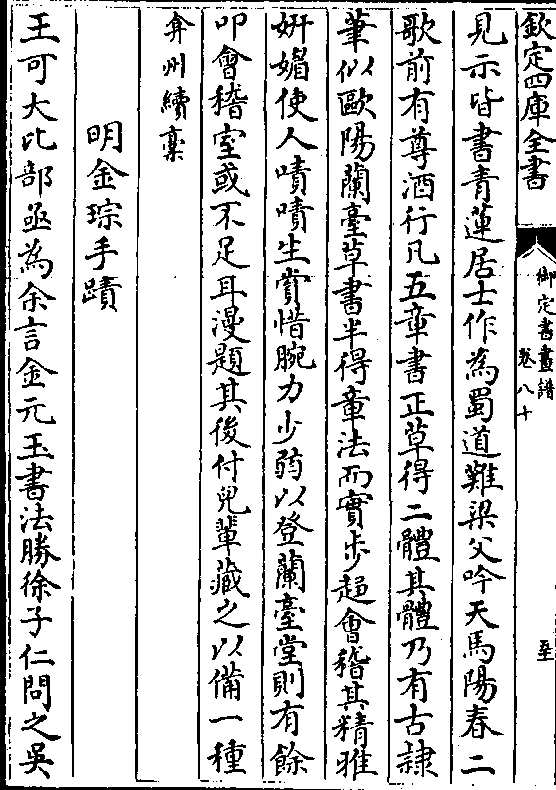 欽定四庫全書
御定書畫譜
卷八十
至
見示皆書青蓮居士作為蜀道難梁父吟天馬陽春二
歌前有尊酒行凡五章書正草得二體其體乃有古隸
筆似歐陽蘭臺草書半得章法而實步趨會稽其精雅
妍媚使人嘖嘖生賞惜腕力少弱以登蘭臺堂則有餘
叩會稽室或不足耳漫題其後付兒輩藏之以備一種
弇州續稾
明金琮手蹟
王可大比部亟為余言金元玉書法勝徐子仁問之吳